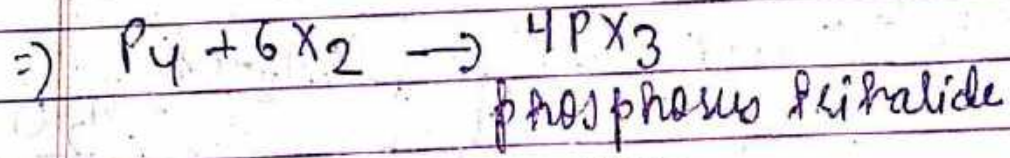 =) P4 + 6X2 → 4PX3
phosphorus trihalide